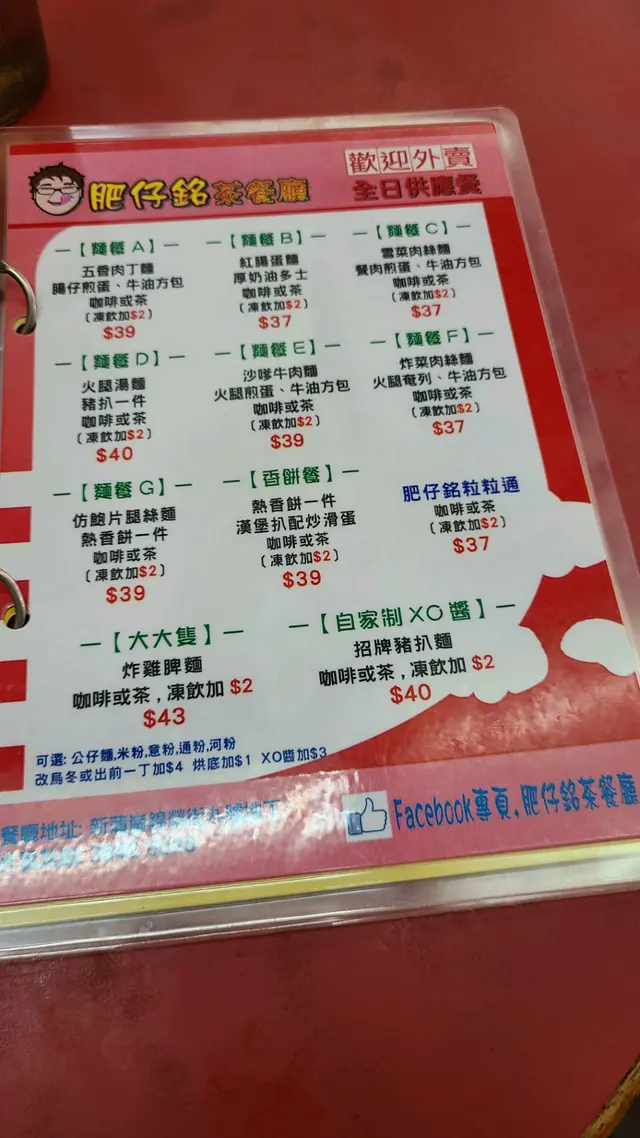 肥仔銘茶餐廳
歡迎外賣
全日供應餐
【麵餐A】
五香肉丁麵
腸仔煎蛋、牛油方包
咖啡或茶
(凍飲加$2)
$39
【麵餐B】
紅腸蛋麵
厚奶油多士
咖啡或茶
(凍飲加$2)
$37
【麵餐C】
雪菜肉絲麵
餐肉煎蛋、牛油方包
咖啡或茶
(凍飲加$2)
$37
【麵餐D】
火腿湯麵
豬扒一件
咖啡或茶
(凍飲加$2)
$40
【麵餐E】
沙嗲牛肉麵
火腿煎蛋、牛油方包
咖啡或茶
(凍飲加$2)
$39
【麵餐F】
炸菜肉絲麵
火腿奄列、牛油方包
咖啡或茶
(凍飲加$2)
$37
【麵餐G】
仿鮑片腿絲麵
熱香餅一件
咖啡或茶
(凍飲加$2)
$39
【香餅餐】
熱香餅一件
漢堡扒配炒滑蛋
咖啡或茶
(凍飲加$2)
$39
肥仔銘粒粒通
咖啡或茶
(凍飲加$2)
$37
【大大隻】
炸雞脾麵
咖啡或茶,凍飲加 $2
$43
【自家制XO醬】
招牌豬扒麵
咖啡或茶,凍飲加 $2
$40
可選:公仔麵,米粉,意粉,通粉,河粉
改烏冬或出前一丁加$4 烘底加$1 XO醬加$3
餐廳地址: 新蒲崗
Facebook專頁.肥仔銘茶餐廳